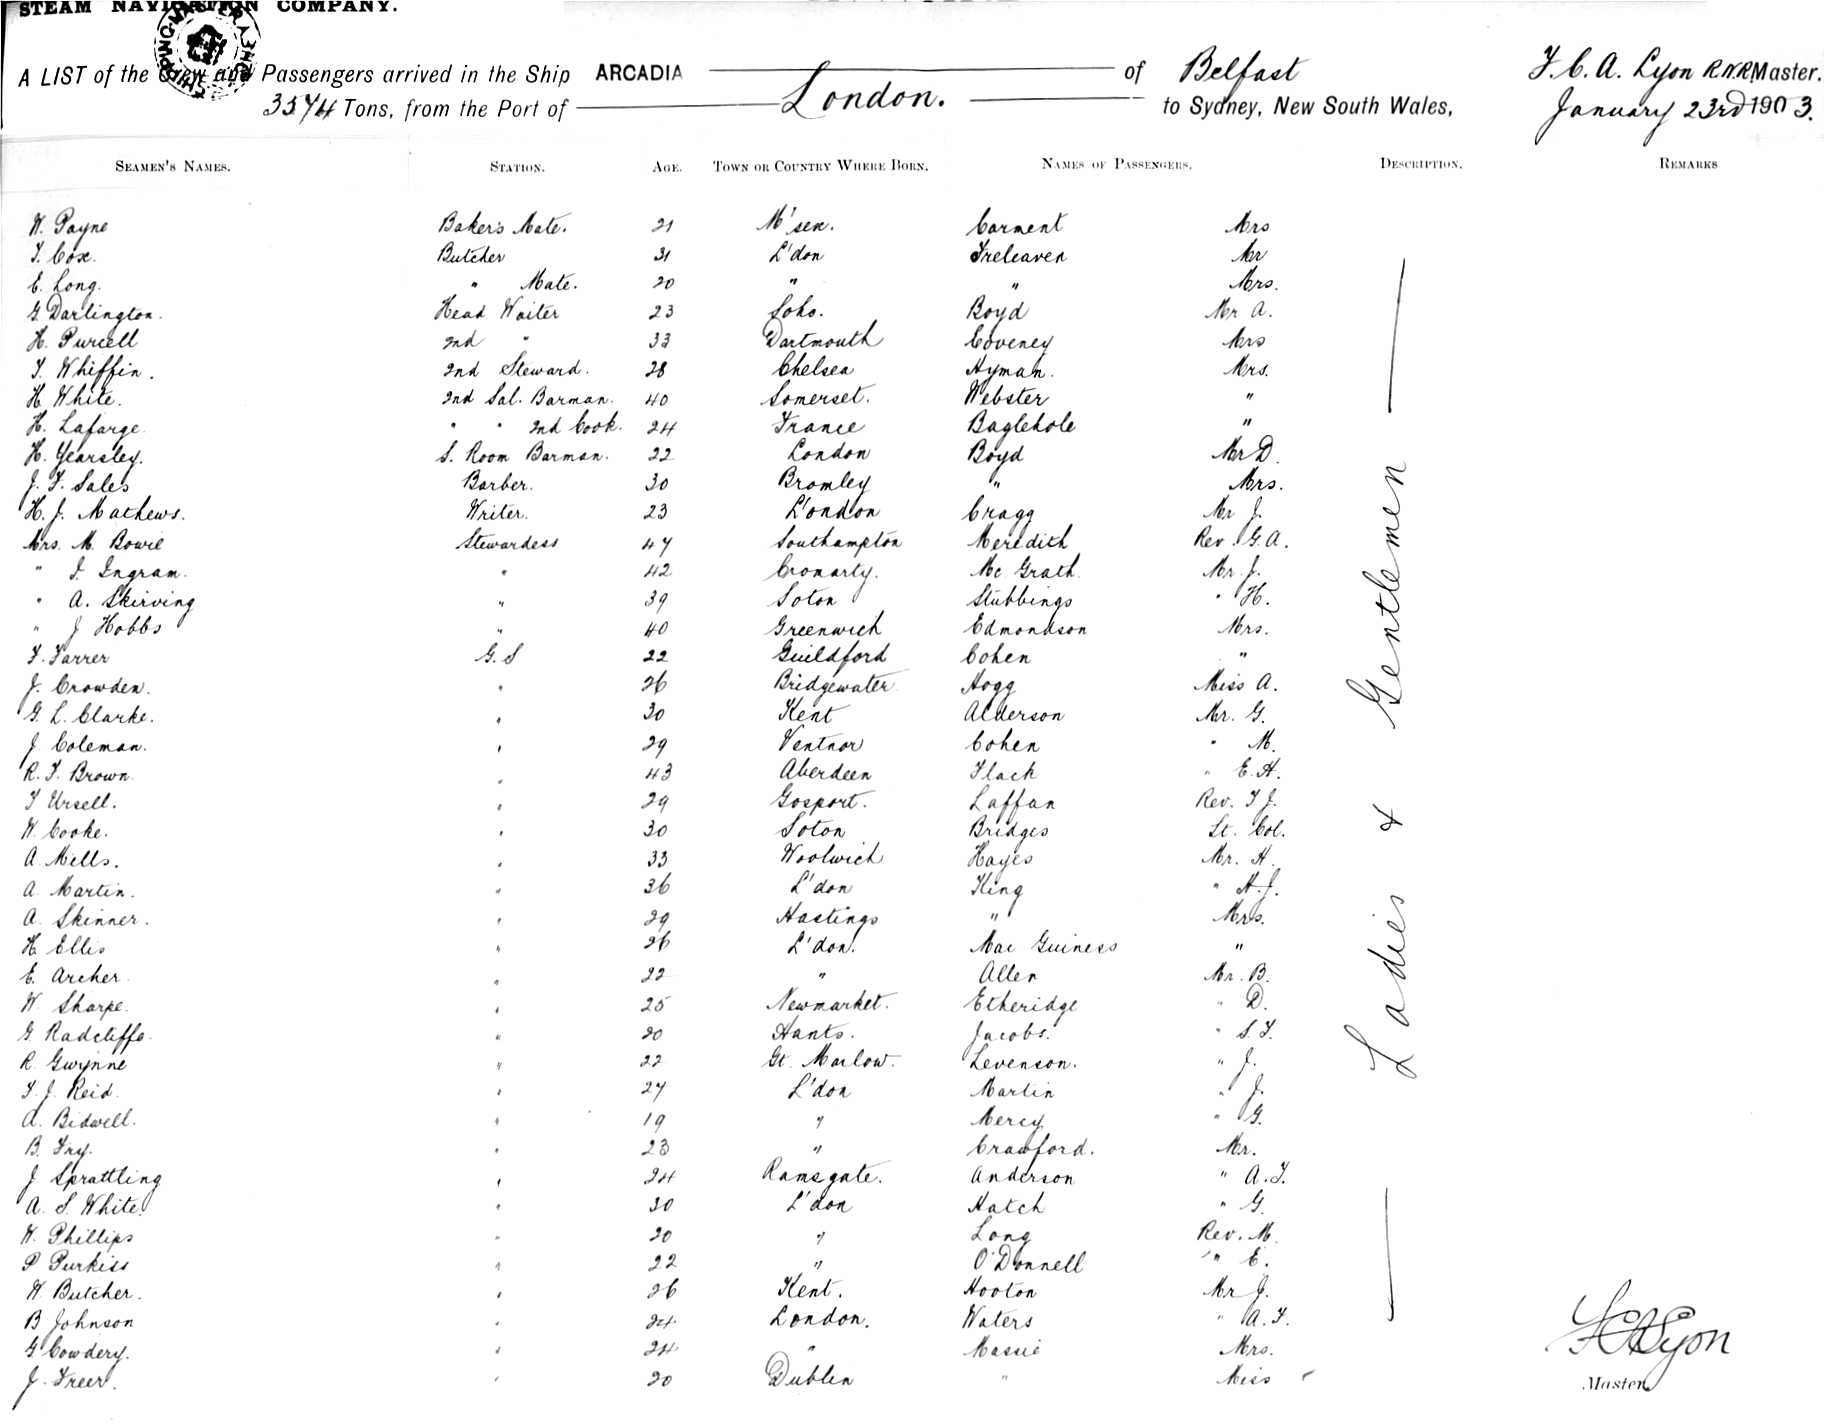 STEAM NAVIGATION COMPANY.
A LIST of the Crew and Passengers arrived in the Ship ARCADIA of Belfast F. C. A. Lyon R.N.R. Master.
3574 Tons, from the Port of London. to Sydney, New South Wales, January 23rd 1903.
SEAMEN'S NAMES. STATION. AGE. TOWN OR COUNTRY WHERE BORN. NAMES OF PASSENGERS. DESCRIPTION. REMARKS
W. Payne Baker's Mate. 21 M'sex. Carment Mrs
T. Cox. Butcher 31 L'don Treleaven Mr
E. Long. " Mate. 20 " " Mrs.
G Darlington. Head Waiter 23 Soho. Boyd Mr A.
H. Purcell 2nd " 33 Dartmouth Coveney Mrs
T. Whiffin. 2nd Steward. 28 Chelsea Hyman. Mrs.
H. White. 2nd Sal. Barman. 40 Somerset. Webster "
H. Lafarge " " 2nd Cook. 24 France Baglehole "
H. Yearsley. S. Room Barman. 22 London Boyd Mr D.
J. F. Sales Barber. 30 Bromley " Mrs.
H. J. Mathews. Writer. 23 L'ondon Cragg Mr J.
Mrs. M. Bowie Stewardess 47 Southampton Meredith Rev. G.A.
" I. Ingram. " 42 Cromarty. Mc Grath Mr. J.
" A. Skirving " 39 Soton Stubbings " H.
" J Hobbs " 40 Greenwich Edmondson Mrs.
F. Farrer G. S 22 Guildford Cohen "
J. Crowden. " 26 Bridgewater Hogg Miss A.
G. L. Clarke. " 30 Kent Alderson Mr. G.
J Coleman. " 29 Ventnor Cohen " M.
R. F. Brown. " 43 Aberdeen Flack " E. H.
T Ursell. " 29 Gosport. Laffan Rev. T J.
W. Cooke. " 30 Soton Bridges Lt. Col.
A. Mills. " 33 Woolwich Hayes Mr. H
A. Martin. " 36 L'don King " H.J.
A. Skinner. " 29 Hastings " Mrs.
H Ellis " 26 L'don. Mac Guiness "
E. Archer " 22 " Allen Mr. B.
W. Sharpe. " 25 Newmarket. Etheridge " D.
G. Radcliffe. " 20 Hants. Jacobs. " S. F.
R. Gwynne " 22 Gt. Marlow. Levenson. " J.
T. J. Reid. " 27 L'don Martin " J.
A. Bidwell. " 19 " Mercy " G.
B. Fry. " 23 " Crawford. Mr.
J Sprattling " 24 Ramsgate. Anderson " A. F.
A. S. White. " 30 L'don Hatch " G.
W. Phillips " 20 " Long Rev. M.
P Purkiss " 22 " O'Donnell " E.
W. Butcher. " 26 Kent. Hooton Mr J.
B Johnson " 24 London. Waters " A. F.
G Cowdery. " 24 " Massie Mrs.
J. Freer. " 20 Dublin " Miss
Ladies & Gentlemen
FCALyon
Master.